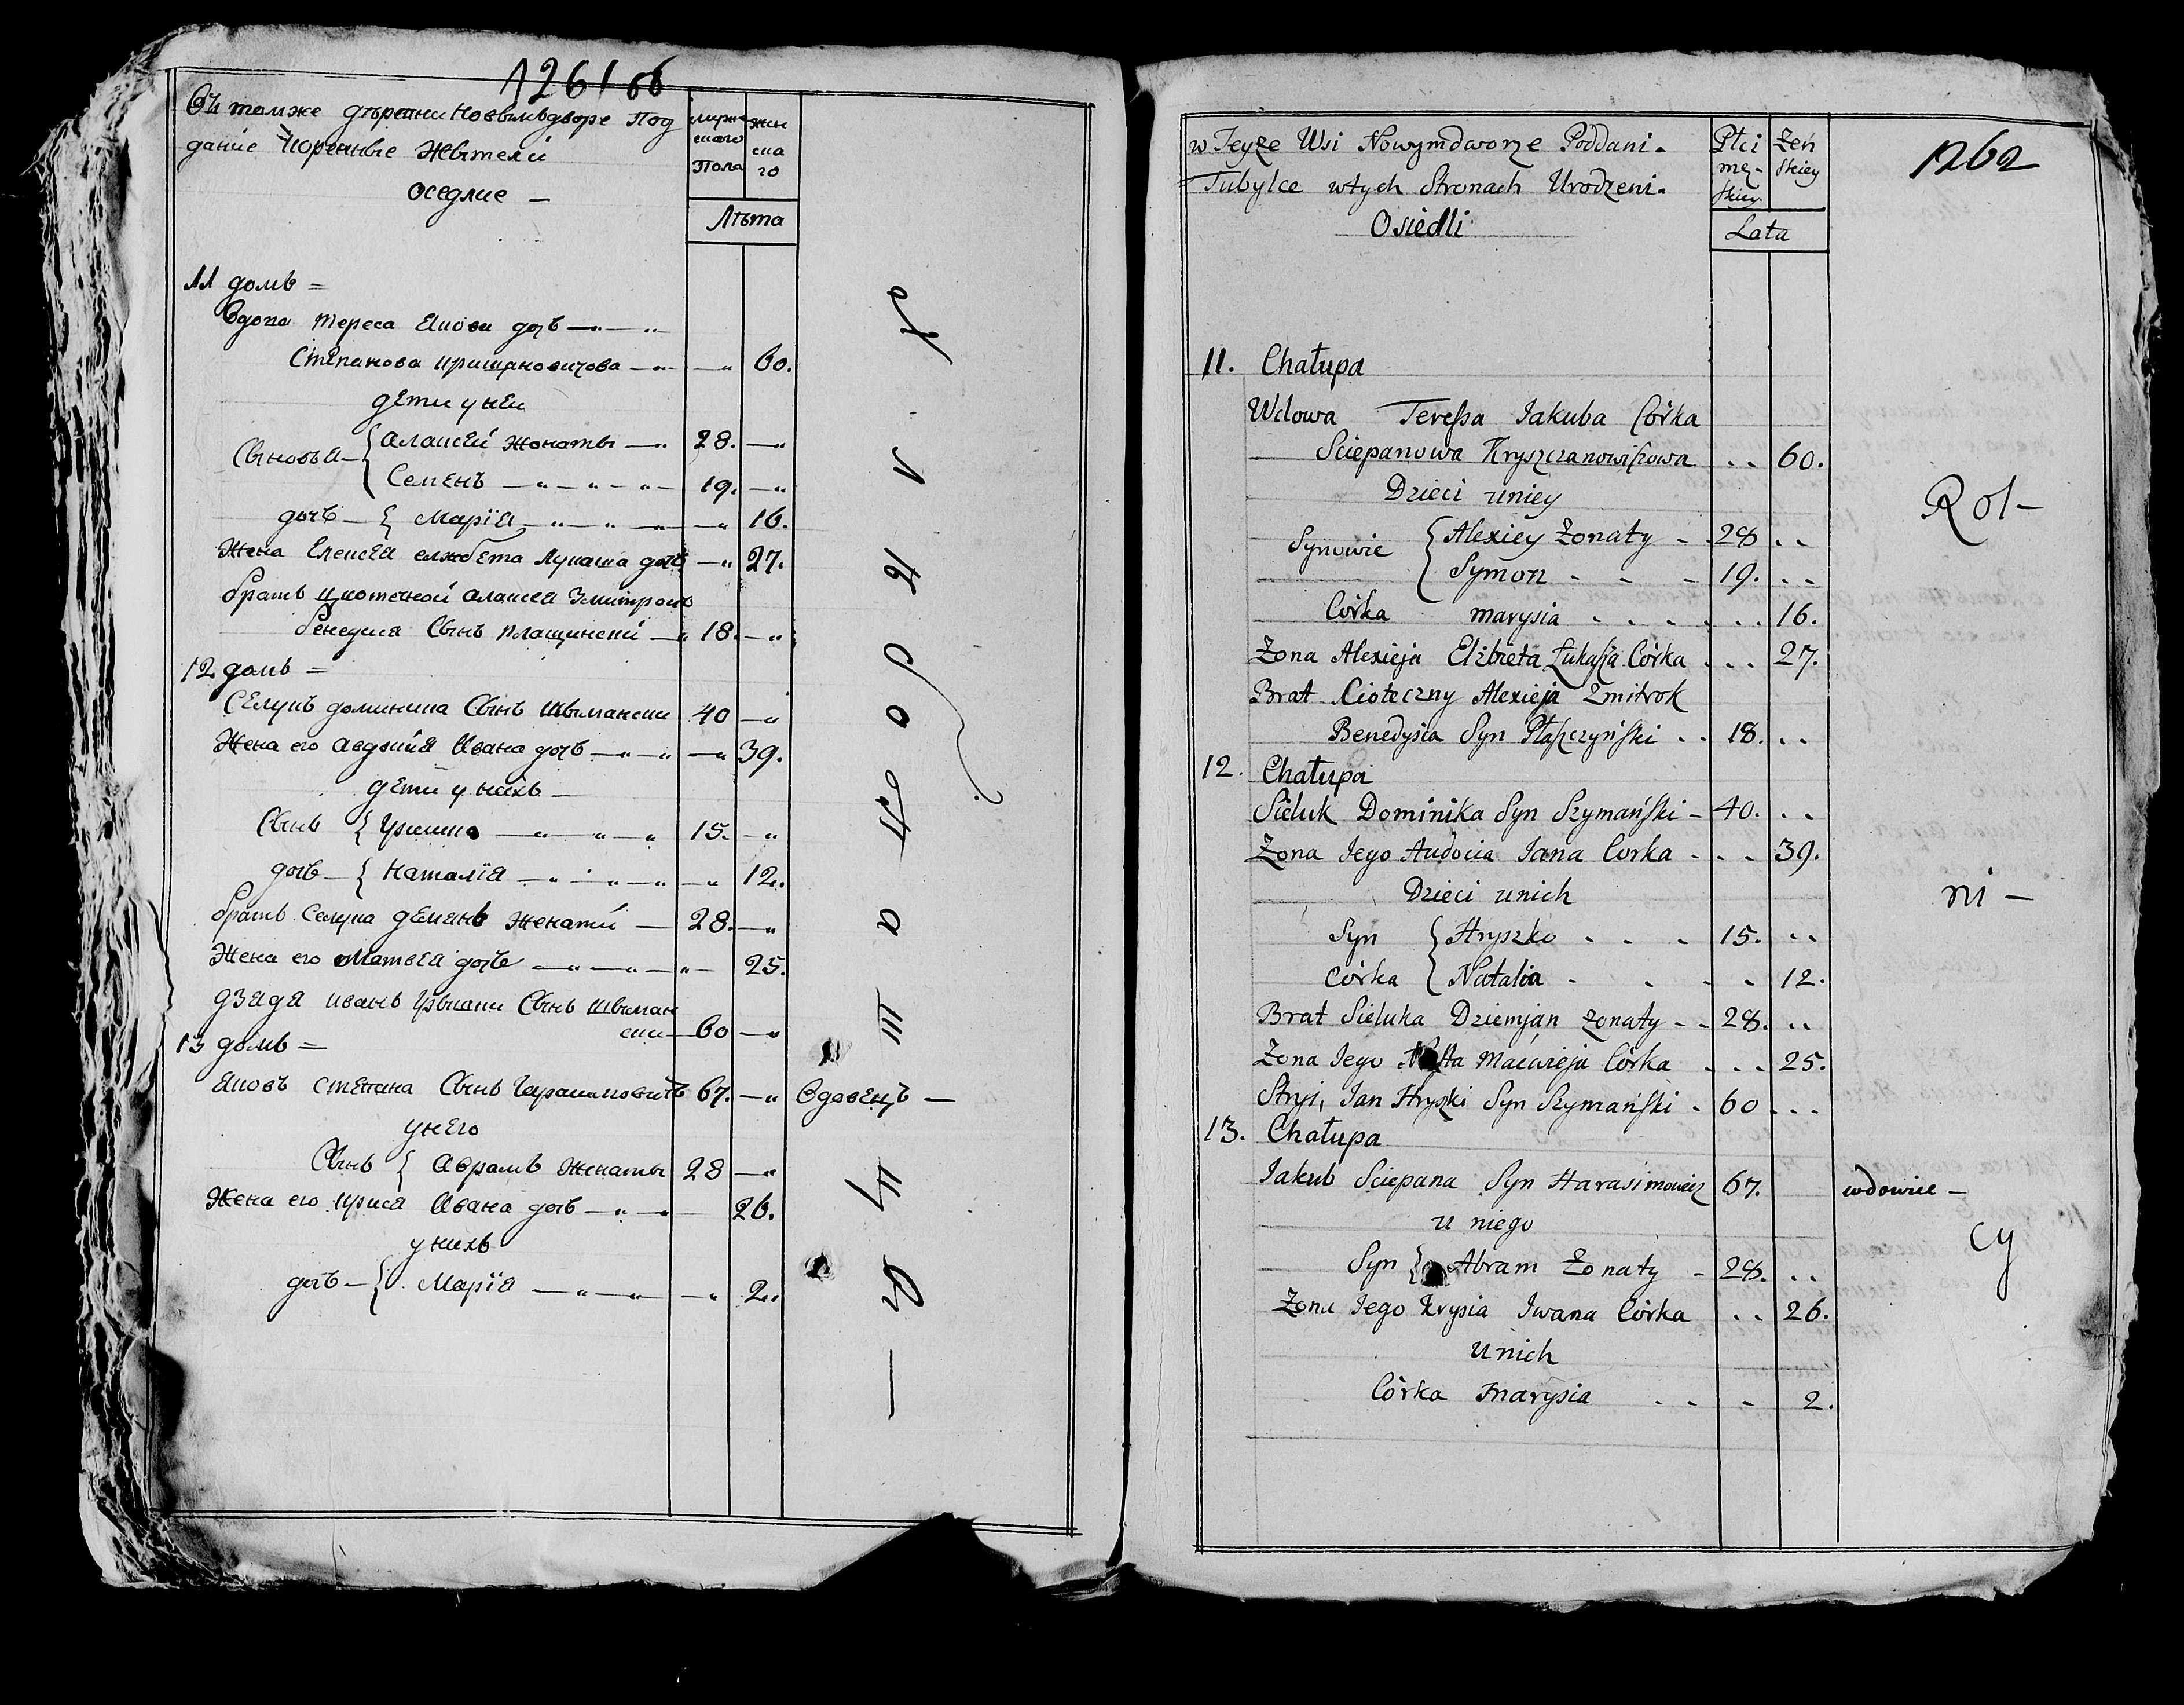 1261 об
Въ томже деревни Новымъдворе Под
даніе Коренные Жытели
оседлие —
мужескаго Пола
женскаго
Лѣта
11 домъ =
Вдова Тереса Якова дочь
Степанова Крищановичова — 60.
дети у неи
Сыновья { Алаксей Жонаты — 28.
Семенъ — 19.
дочь — { Марія — 16.
Жена Елексея елжбета Лукаша дочь — 27.
братъ цотечной Алаксея Змитрокъ
бенедися Сынъ Плащински — 18.
12 домъ =
Селукъ доминика Сынъ Шымански 40
Жена его Авдокия Ивана дочь — 39.
дети у нихъ —
Сынъ { Гришко — 15.
дочь — { Наталія — 12.
братъ Селука Демянъ Женатй — 28.
Жена его Матвея дочь — 25.
дзядя иванъ Грышки Сынъ Шыман
ски — 60
13 домъ =
Яковъ Степана Сынъ Гарасимовичъ 67. — Вдовецъ —
у него
Сынъ { Аврамъ Женаты 28
Жена его Крися Ивана дочь — 26.
у нихъ
дочь — { Марія — 2.
1262
w Teyże Wsi Nowymdworze Poddani.
Tubylce wtych Stronach Urodzeni.
Osiedli
Płci męskiey
Żeńskiey
Lata
11. Chałupa
Wdowa Teressa Jakuba Córka
Sciepanowa Kryszczanowiczowa . . 60.
Dzieci uniey
Synowie { Alexiey Żonaty - 28 . .
Symon - - - 19. . .
Córka marysia . . . . 16.
Żona Alexieja Elżbieta Łukasza Córka . . . 27.
Brat Cioteczny Alexieja Zmitrok
Benedysia Syn Płaszczyński . . 18. . .
12. Chałupa
Sieluk Dominika Syn Szymański - 40. . .
Żona Jego Audocia Jana Corka - . . 39.
Dzieci unich
Syn { Hryszko - - - 15. . .
Córka { Natalia - - - 12.
Brat Sieluka Dziemjan żonaty - - 28. . .
Żona Jego Macwieja Córka . . . 25.
Stryi, Jan Hryszki Syn Szymański . 60 . . .
13. Chałupa
Jakub Sciepana Syn Harasimowicz 67. wdowiec —
u niego
Syn { Abram Żonaty - 28. . .
Żona Jego Krysia Iwana Córka . . 26.
Unich
Córka marysia . . - 2.
Rol-
ni -
cy